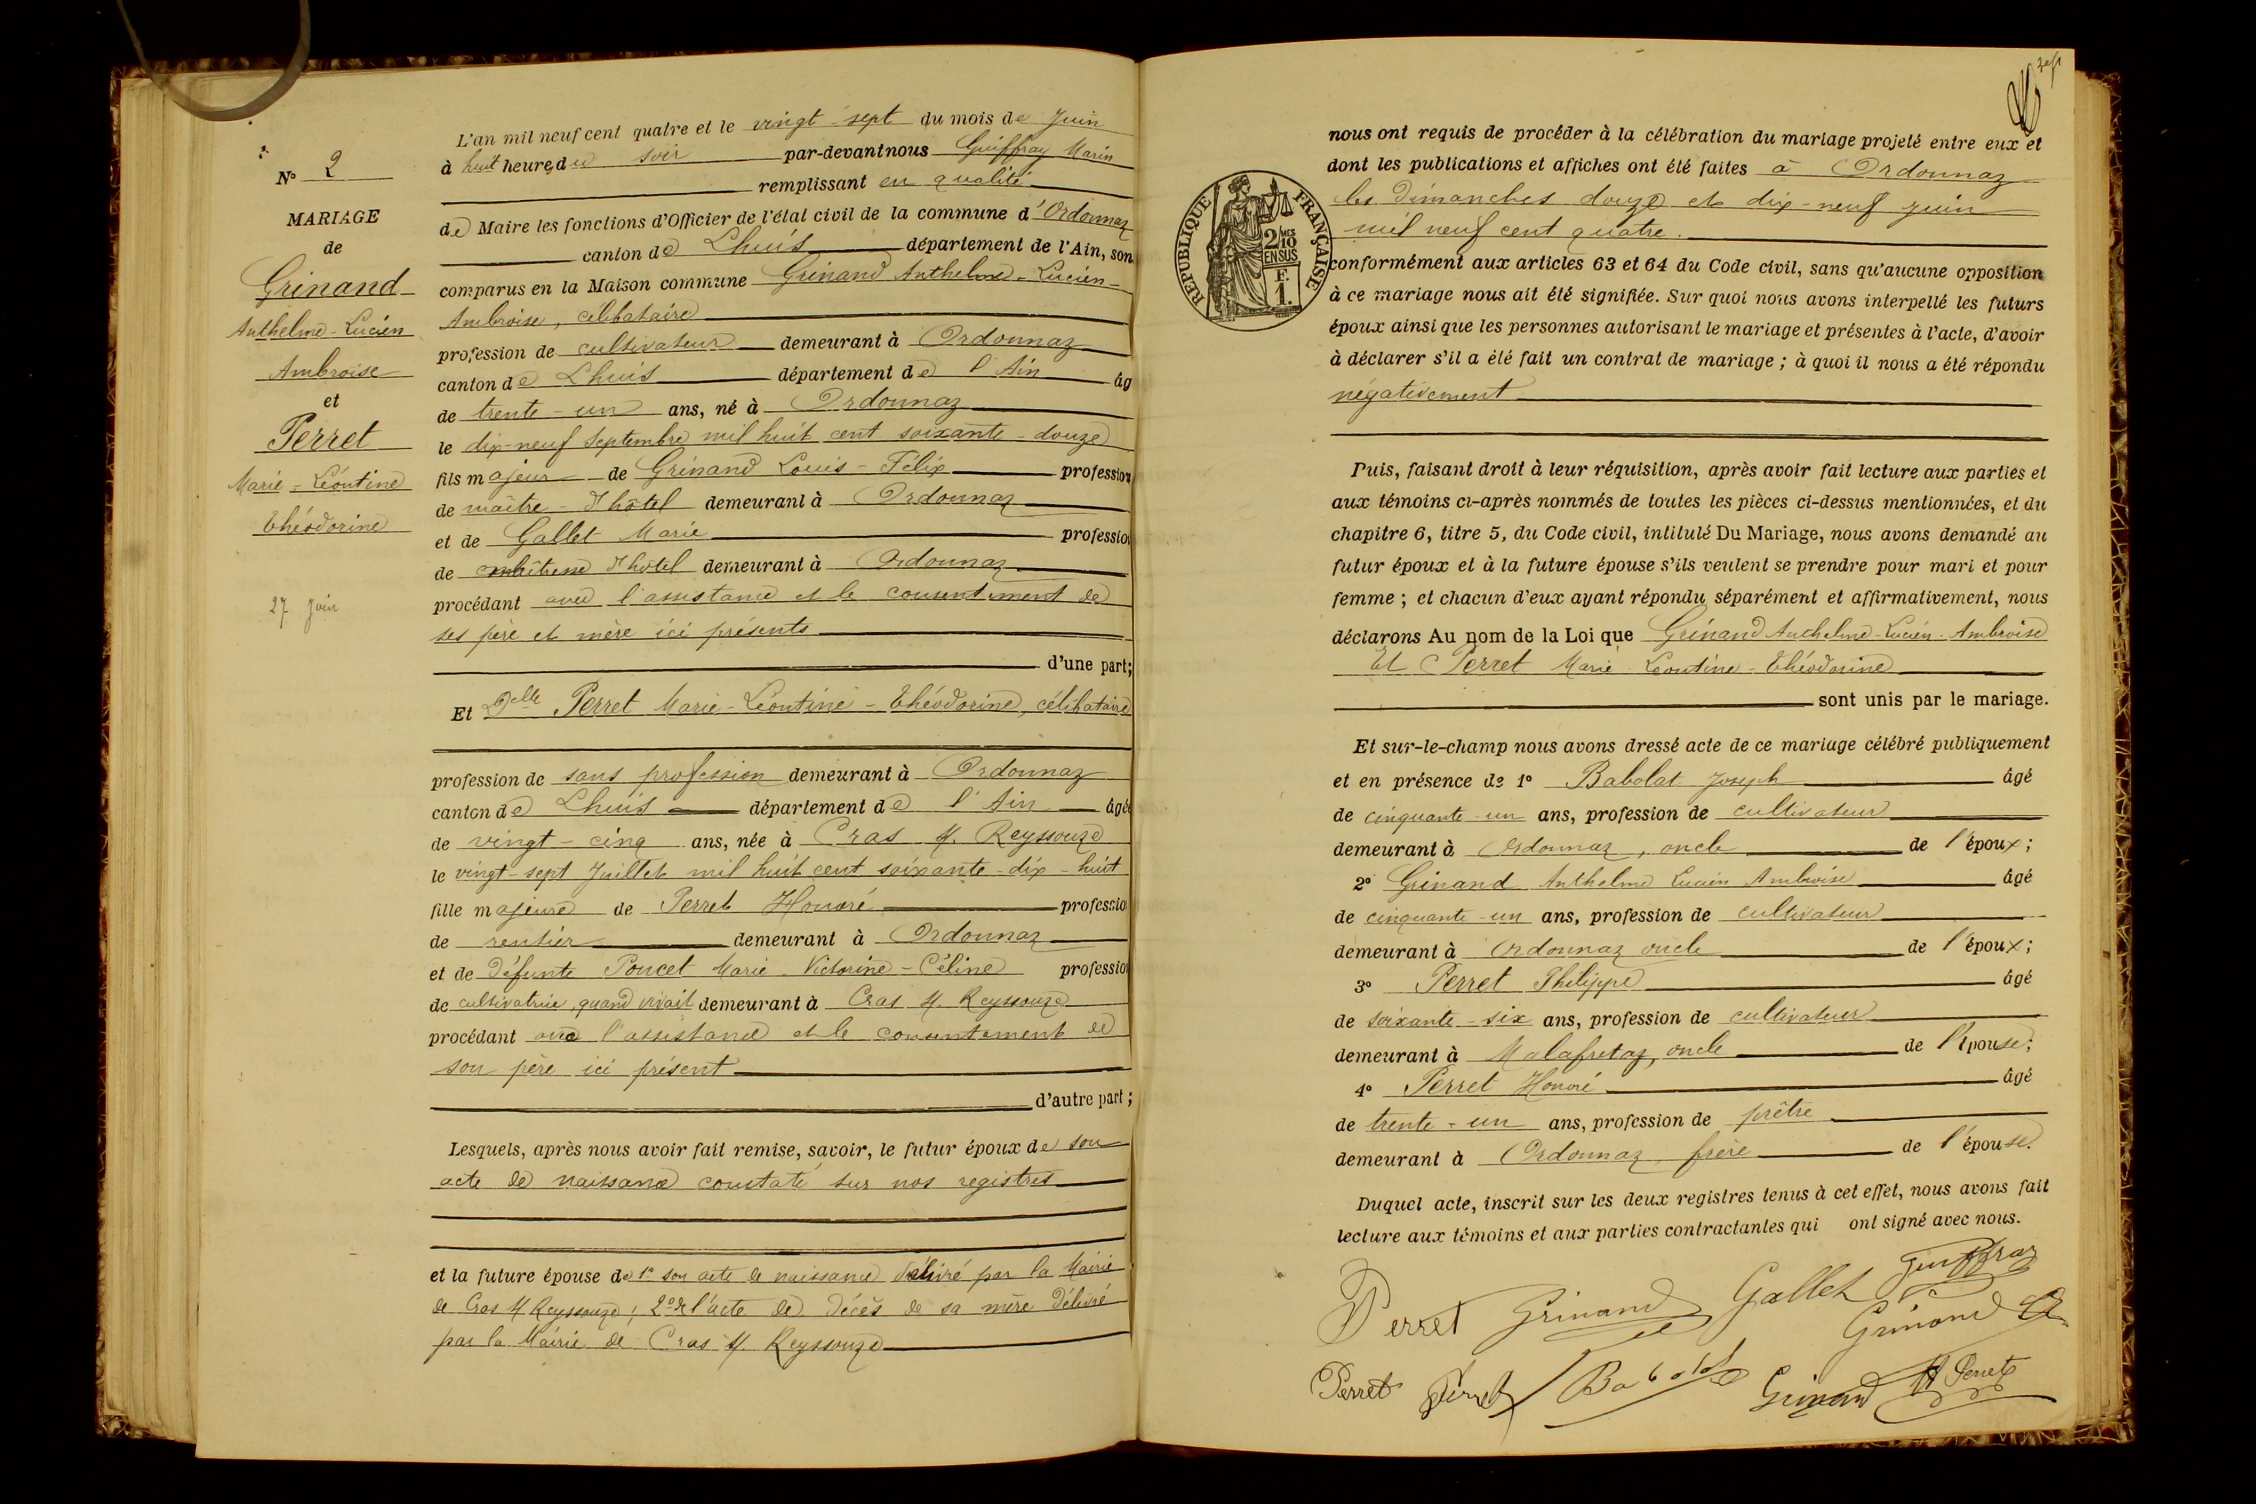 N° 2
MARIAGE
de
Grinand
Anthelme-Lucien
Ambroise
et
Perret
Marie-Léontine
Théodorine
27 Juin
L'an mil neuf cent quatre et le vingt-sept du mois de Juin
à huit heures du soir par-devant nous Guiffray Marin
remplissant en qualité
de Maire les fonctions d'Officier de l'état civil de la commune d'Ordonnaz
canton de Lhuis département de l'Ain, son
comparus en la Maison commune Grinand Anthelme-Lucien-
Ambroise, célibataire
profession de cultivateur demeurant à Ordonnaz
canton de Lhuis département de l'Ain âg
de trente-un ans, né à Ordonnaz
le dix-neuf Septembre mil huit cent soixante-douze
fils majeur de Grinand Louis-Félix profession
de maître-d'hôtel demeurant à Ordonnaz
et de Gallet Marie profession
de maîtresse d'hôtel demeurant à Ordonnaz
procédant avec l'assistance et le consentement de
ses père et mère ici présents
d'une part;
Et Delle Perret Marie-Léontine-Théodorine, célibataire
profession de sans profession demeurant à Ordonnaz
canton de Lhuis département de l'Ain âgée
de vingt-cinq ans, née à Cras s/ Reyssouze
le vingt-sept Juillet mil huit cent soixante-dix-huit
fille majeure de Perret Honoré profession
de rentier demeurant à Ordonnaz
et de défunte Poncet Marie-Victorine-Céline profession
de cultivatrice, quand vivait demeurant à Cras s/ Reyssouze
procédant avec l'assistance et le consentement de
son père ici présent
d'autre part;
Lesquels, après nous avoir fait remise, savoir, le futur époux de son
acte de naissance constaté sur nos registres
et la future épouse de 1° son acte de naissance délivré par la Mairie
de Cras s/ Reyssouze; 2° de l'acte de décès de sa mère délivré
par la Mairie de Cras s/ Reyssouze
nous ont requis de procéder à la célébration du mariage projeté entre eux et
dont les publications et affiches ont été faites à Ordonnaz
les dimanches douze et dix-neuf juin
mil neuf cent quatre.
RÉPUBLIQUE FRANÇAISE
2/10MES
EN SUS
F.
1.
conformément aux articles 63 et 64 du Code civil, sans qu'aucune opposition
à ce mariage nous ait été signifiée. Sur quoi nous avons interpellé les futurs
époux ainsi que les personnes autorisant le mariage et présentes à l'acte, d'avoir
à déclarer s'il a été fait un contrat de mariage; à quoi il nous a été répondu
négativement
Puis, faisant droit à leur réquisition, après avoir fait lecture aux parties et
aux témoins ci-après nommés de toutes les pièces ci-dessus mentionnées, et du
chapitre 6, titre 5, du Code civil, intitulé Du Mariage, nous avons demandé au
futur époux et à la future épouse s'ils veulent se prendre pour mari et pour
femme; et chacun d'eux ayant répondu séparément et affirmativement, nous
déclarons Au nom de la Loi que Grinand Anthelme-Lucien-Ambroise
Et Perret Marie-Léontine-Théodorine
sont unis par le mariage.
Et sur-le-champ nous avons dressé acte de ce mariage célébré publiquement
et en présence de 1° Babolat Joseph âgé
de cinquante-un ans, profession de cultivateur
demeurant à Ordonnaz, oncle de l'époux;
2° Grinand Anthelme Lucien Ambroise âgé
de cinquante-un ans, profession de cultivateur
demeurant à Ordonnaz oncle de l'époux;
3° Perret Philippe âgé
de soixante-six ans, profession de cultivateur
demeurant à Malafretaz, oncle de l'épouse;
4° Perret Honoré âgé
de trente-un ans, profession de prêtre
demeurant à Ordonnaz, frère de l'épouse.
Duquel acte, inscrit sur les deux registres tenus à cet effet, nous avons fait
lecture aux témoins et aux parties contractantes qui ont signé avec nous.
Perret Grinand Gallet Guiffray
Grinand
Perret Perret Babolat Grinand H Perret